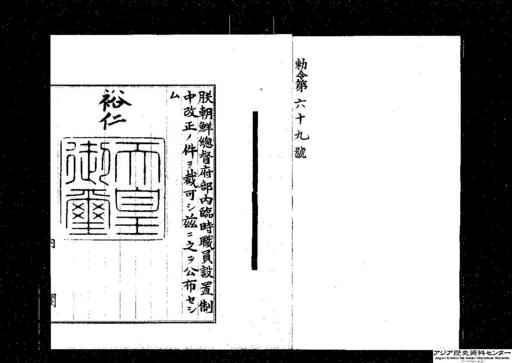 勅令第六十九號
朕朝鮮總督府部內臨時職員設置制
中改正ノ件ヲ裁可シ茲ニ之ヲ公布セシ
ム
裕仁
天皇
御璽
内
閣
アジア歴史資料センター
Japan Center for Asian Historical Records